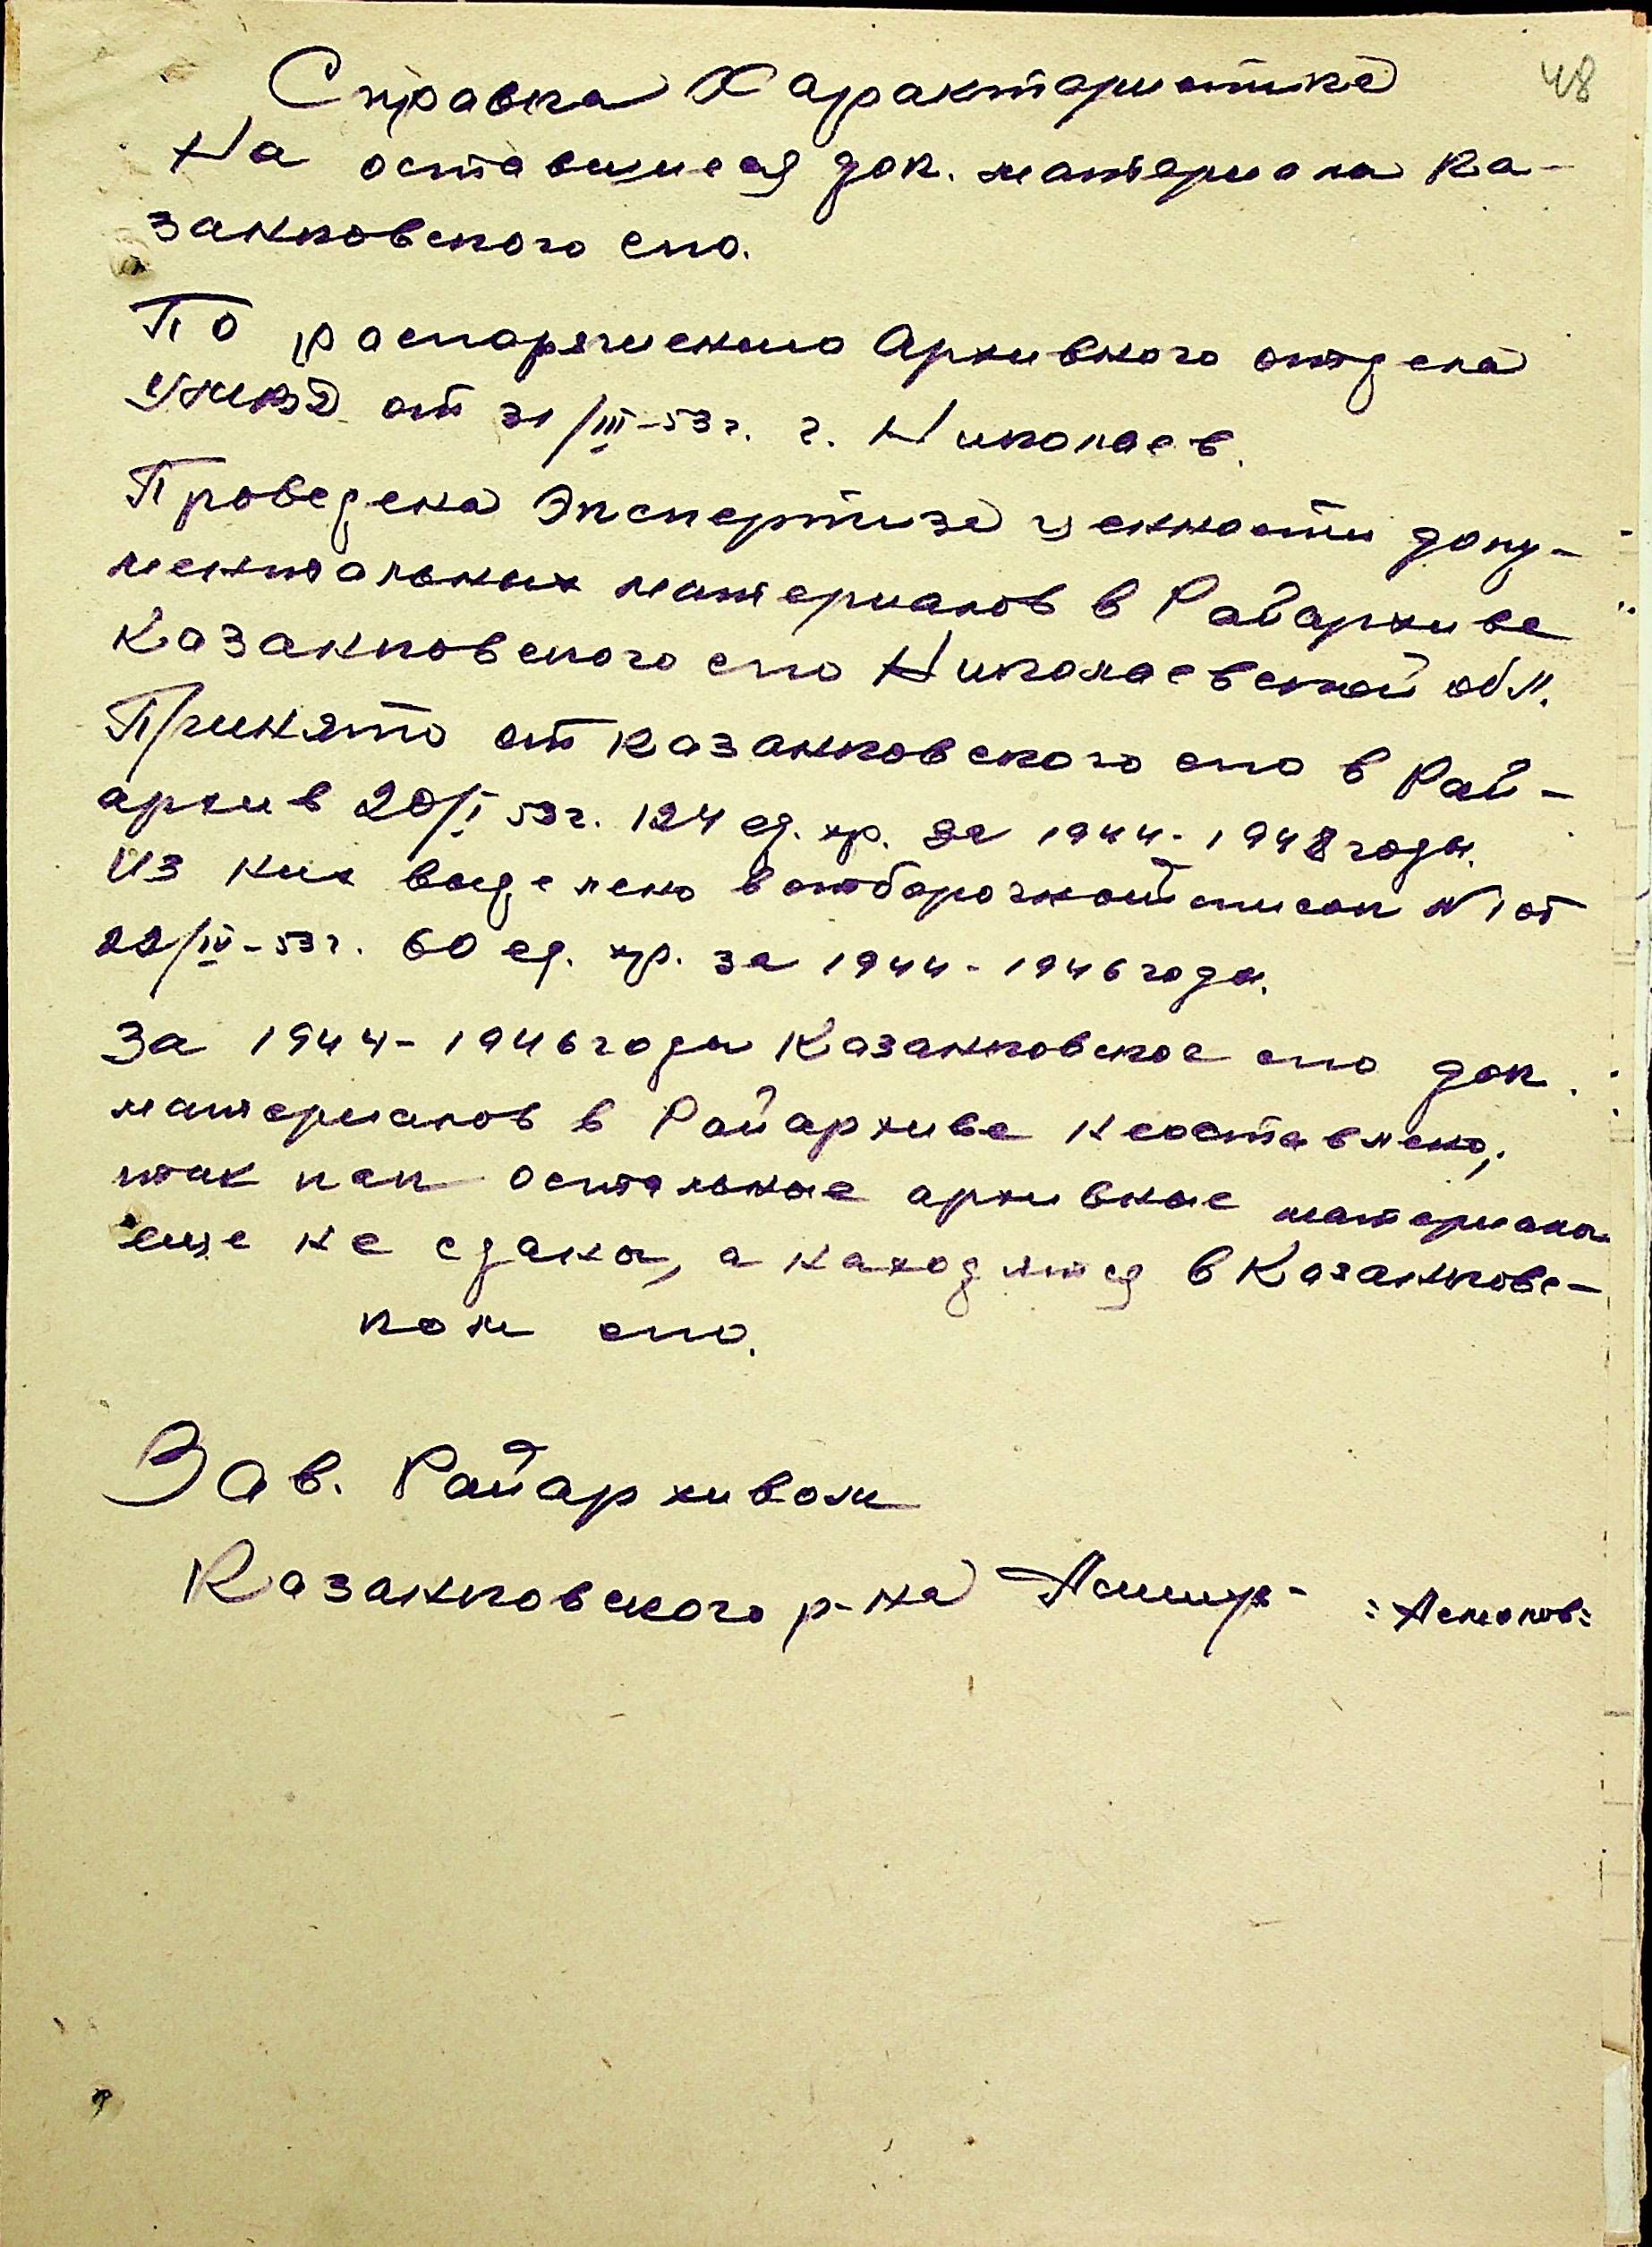 48
Справка Характеристика
На оставшиеся док. материала Ка-
занковского спо.
По распоряжению Архивного отдела
УМВД от 31/III-53г. г. Николаев.
Проведена Экспертиза ценности доку-
ментальных материалов в Райархиве
Казанковского спо Николаевской обл.
Принято от Казанковского спо в Рай-
архив 20/I 53г. 124 ед. хр. за 1944-1948 годы.
Из них выделено в отборочной список №1 от
22/IV-53г. 60 ед. хр. за 1944-1946 годы.
За 1944-1946 годы Казанковское спо док.
материалов в Райархиве неоставлено,
так как остальные архивные материалы
еще не сданы, а находятся в Казанковс-
ком спо.
Зав. Райархивом
Казанковского р-на